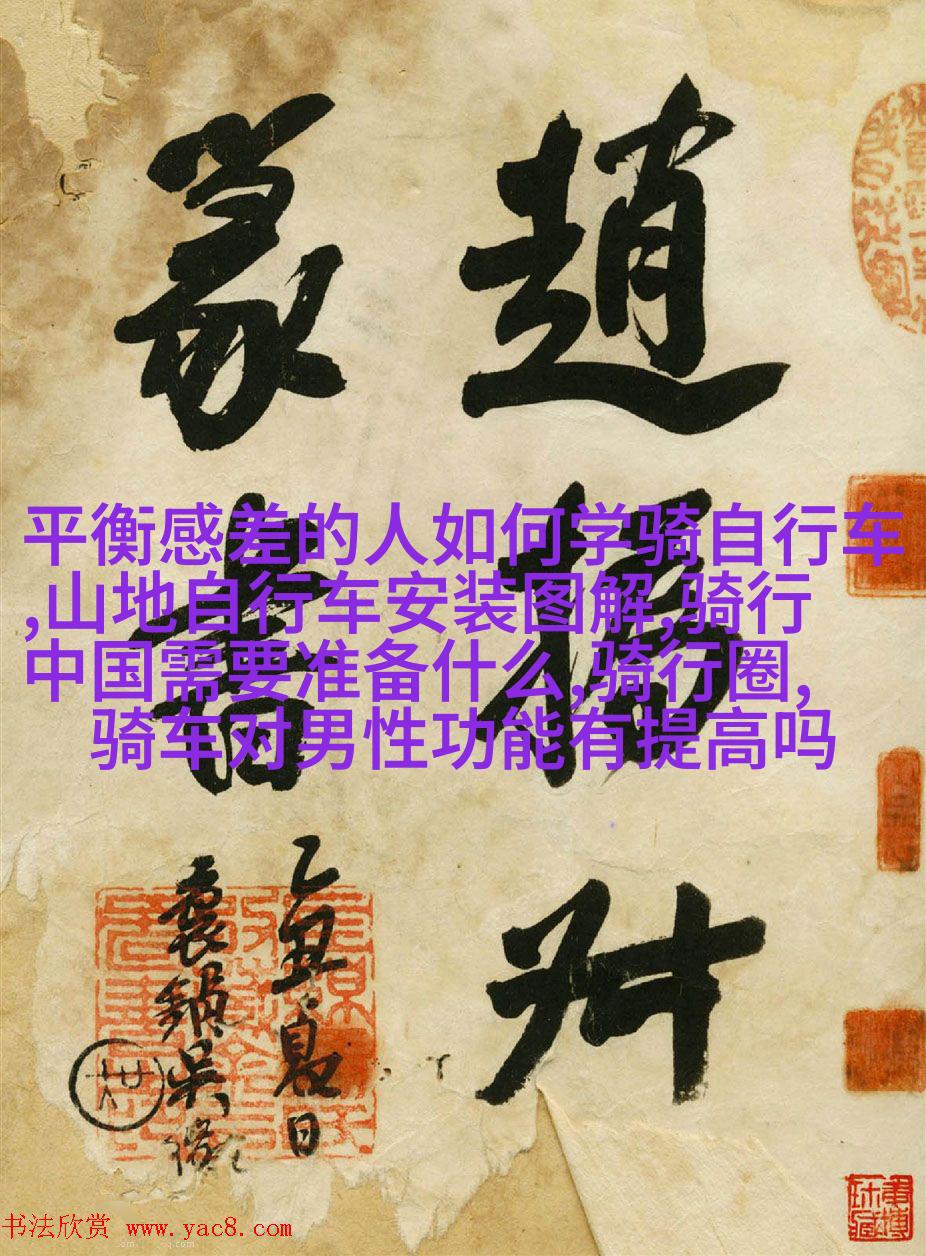 趙撝叔
篆書
平衡感差的人如何学骑自行车
,山地自行车安装图解,骑行
中国需要准备什么,骑行圈,
骑车对男性功能有提高吗
乙亥夏日
吳
书法欣赏 www.yac8.com